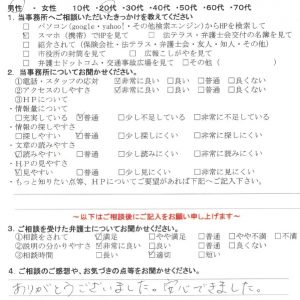 男性 ・ 女性　10代・20代・30代・40代・50代・60代・70代
1. 当事務所へご相談いただいたきっかけを教えてください
□ パソコン(google・yahoo!・その他検索エンジン)からHPを検索して
☑ スマホ(携帯)でHPを見て □ 法テラス・弁護士会交付の名簿を見て
□ 紹介されて(保険会社・法テラス・弁護士会・友人・知人・その他)
□ 市役所の封筒を見て □ 広報こしがやを見て
□ 弁護士ドットコム・交通事故広場を見て □ その他(　)
2. 当事務所についてお聞かせください。
①電話・スタッフの応対 ☑非常に良い □良い □普通 □良くない
②アクセスのしやすさ ☑非常に良い □良い □普通 □良くない
③HPについて
・情報量について
□充実している ☑普通 □少し不足している □非常に不足している
・情報の探しやすさ
□探しやすい ☑普通 □少し探しにくい □非常に探しにくい
・文章の読みやすさ
☑読みやすい □普通 □少し読みにくい □非常に読みにくい
・HPの見やすさ
☑見やすい □普通 □少し見にくい □非常に見にくい
・もっと知りたい点等、HPについてご要望があれば下記へご記入下さい。
～以下はご相談後にご記入をお願い申し上げます～
3. ご相談を受けた弁護士についてお聞かせください。
①相談をされて ☑満足 □やや満足 □普通 □やや不満 □不満
②説明の分かりやすさ ☑非常に良い □良い □普通 □良くない
③相談時間 □長い ☑適切 □短い
4. ご相談のご感想や、お気づきの点等をお聞かせください。
ありがとうございました。安心できました。